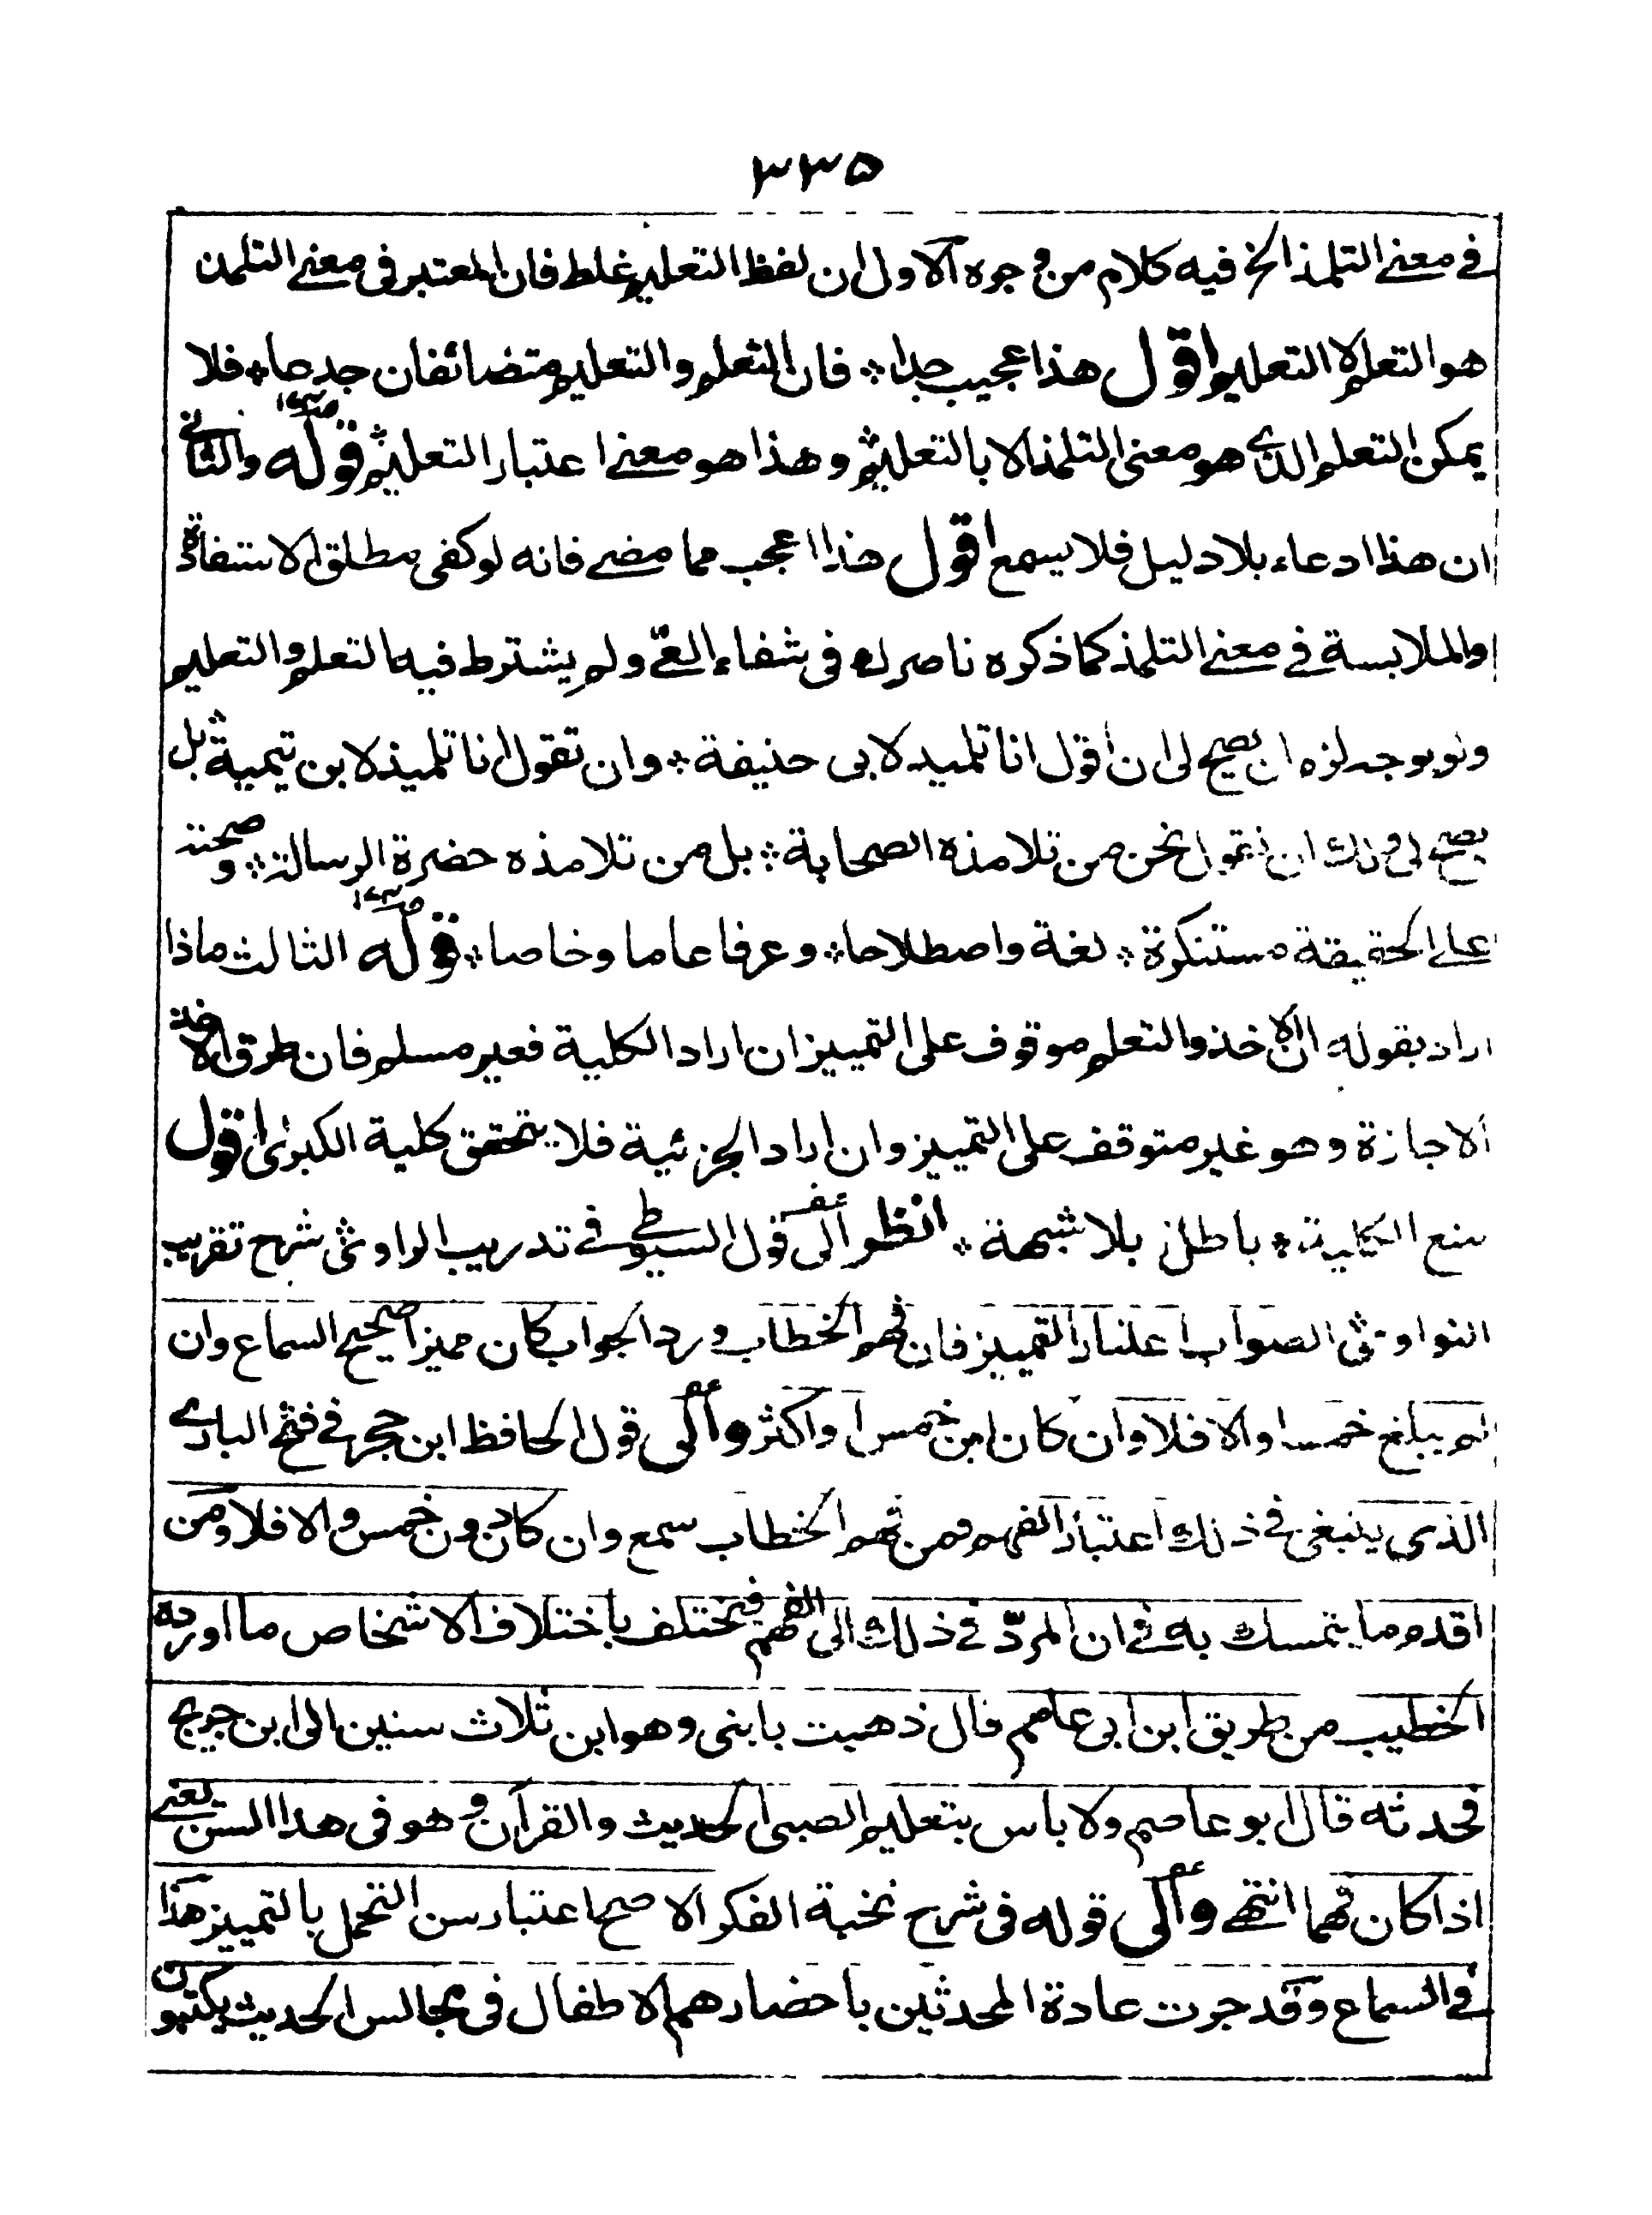 ٣٣٥
في معنى التلمذ الخ فيه كلام من وجوه الاول ان لفظ التعليم غلط فان المعتبر في معنى التلمذ
هو التعلم لا التعليم اقول هذا عجيب جدا فان التعلم والتعليم متضائفان جدحا فلا
يمكن التعلم الذي هو معنى التلمذ الا بالتعليم وهذا هو معنى اعتبار التعليم قوله والثاني
ان هذا ادعاء بلا دليل فلا يسمع اقول هذا اعجب مما مضى فانه لو كفى مطلق الاستفادة
والملابسة في معنى التلمذ كما ذكره ناصرك في شفاء العي ولم يشترط فيه التعلم والتعليم
ولو بوجه لزم ان يصح لي ان اقول انا تلميذ لابي حنيفة وان تقول انا تلميذ لابن تيمية بل
يصح لي ولك ان نقول نحن من تلامذه الصحابة بل من تلامذه حضرة الرسالة وصحته
على الحقيقة مستنكرة لغة واصطلاحا وعرفا عاما وخاصا قوله الثالث ماذا
اراد بقوله ان الاخذ والتعلم موقوف على التمييز ان اراد الكلية فغير مسلم فان طرق الاخذ
الاجازة وهو غير متوقف على التمييز وان اراد الجزئية فلا يتحقق كلية الكبرى اقول
منع الكلية باطل بلا شبهة انظر الى قول السيوطي في تدريب الراوي شرح تقريب
النواوي الصواب اعتبار التمييز فان فهم الخطاب ورد الجواب كان مميزا صحيح السماع وان
لم يبلغ خمسا والا فلا وان كان ابن خمس او اكثر والى قول الحافظ ابن حجر في فتح الباري
الذي ينبغي في ذلك اعتبار الفهم فمن فهم الخطاب سمع وان كان دون خمس والا فلا ومن
اقدم ما يتمسك به في ان المرد في ذلك الى الفهم فتختلف باختلاف الاشخاص ما اورده
الخطيب من طريق ابن ابي عاصم قال ذهبت بابني وهو ابن ثلاث سنين الى ابن جريج
فحدثه قال ابو عاصم ولا باس بتعليم الصبي الحديث والقرآن وهو في هذا السن يعني
اذا كان فهما انتهى والى قوله في شرح نخبة الفكر الاصح اعتبار سن التحمل بالتمييز هذا
في السماع وقد جرت عادة المحدثين باحضارهم الاطفال في مجالس الحديث يكتبون